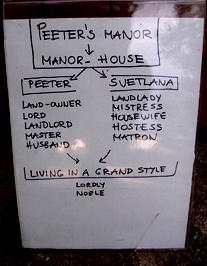 PEETER'S MANOR
MANOR-HOUSE
PEETER
SVETLANA
LAND-OWNER
LORD
LANDLORD
MASTER
HUSBAND
LANDLADY
MISTRESS
HOUSEWIFE
HOSTESS
MATRON
LIVING IN A GRAND STYLE
LORDLY
NOBLE